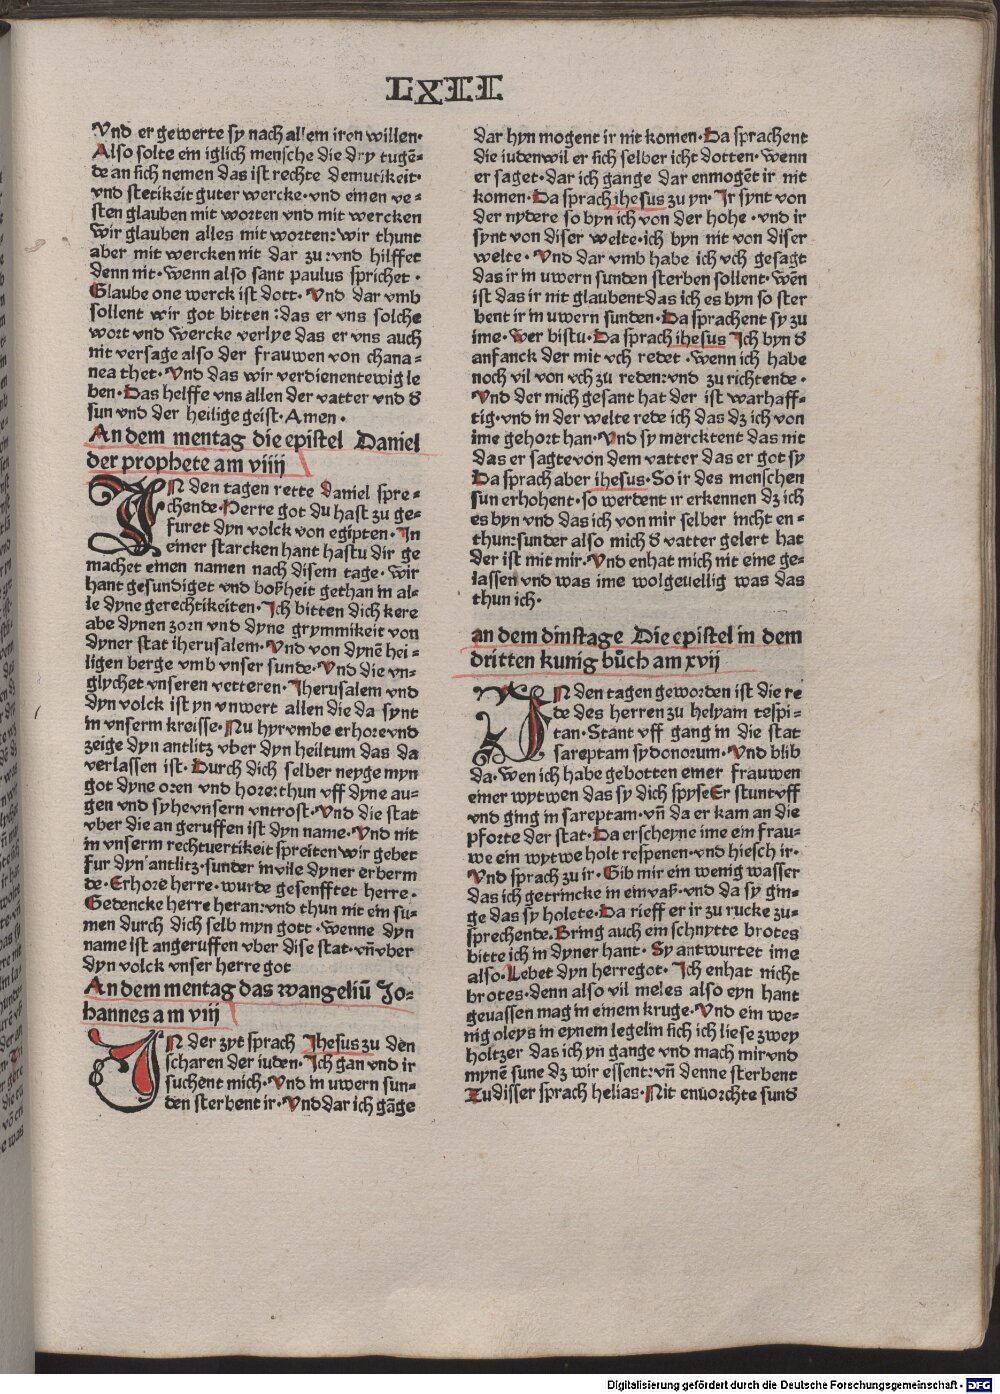 LXII
Vnd er gewerte sy nach allem iren willen·
Also solte ein iglich mensche die dry tugē=
de an sich nemen das ist rechte demutikeit·
vnd stetikeit guter wercke·vnd einen ve=
sten glauben mit worten vnd mit wercken
wir glauben alles mit worten:wir thunt
aber mit wercken nit dar zu:vnd hilffet
denn nit·wenn also sant paulus sprichet·
Glaube one werck ist dott·Vnd dar vmb
sollent wir got bitten:das er vns solche
wort vnd wercke verlye das er vns auch
nit versage also der frauwen von chana=
nea thet·Vnd das wir verdienen tewig le
ben·Das helffe vns allen der vatter vnd d̕
sun vnd der heilige geist·Amen·
An dem mentag die epistel Daniel
der prophete am viiii
IN den tagen rette Daniel spre=
chende·Herre got du hast zu ge=
furet dyn volck von egipten·In
einer starcken hant hastu dir ge
machet einen namen nach disem tage·wir
hant gesundiget vnd boßheit gethan in al=
le dyne gerechtikeiten·Ich bitten dich kere
abe dynen zorn vnd dyne grymmikeit von
dyner stat iherusalem·Vnd von dynē hei=
ligen berge vmb vnser sunde·Vnd die vn=
glychet vnseren vetteren·Jherusalem vnd
dyn volck ist yn vnwert allen die da synt
in vnserm kreisse·Nu hyrvmbe erhore vnd
zeige dyn antlitz vber dyn heiltum das da
verlassen ist·Durch dich selber neyge myn
got dyne oren vnd hore:thun vff dyne au=
gen vnd syhe vnsern vntrost·Vnd die stat
vber die an geruffen ist dyn name·Vnd nit
in vnserm rechtuertikeit spreiten wir gebet
fur dyn antlitz·sunder in vile dyner erberm
de·Erhore herre·wurde gesenfftet herre·
Gedencke herre heran:vnd thun nit ein su=
men durch dich selb myn gott·wenne dyn
name ist angeruffen vber dise stat·vn̄ vber
dyn volck vnser herre got
An dem mentag das wangeliū Jo=
hannes am viii
IN der zyt sprach Jhesus zu den
scharen der iuden·Ich gan vnd ir
suchent mich·Vnd in uwern sun=
den sterbent ir·Vnd dar ich gāge
dar hyn mogent ir nit komen·Da sprachent
die iuden wil er sich selber icht dotten·wenn
er saget·dar ich gange dar enmogēt ir nit
komen·Da sprach ihesus zu yn·Ir synt von
der nydere so byn ich von der hohe·vnd ir
synt von diser welte·ich byn nit von diser
welte·Vnd dar vmb habe ich vch gesagt
das ir in uwern sunden sterben sollent·wēn
ist das ir nit glaubent das ich es byn so ster
bent ir in uwern sunden·Da sprachent sy zu
ime·wer bistu·Da sprach ihesus Ich byn d̕
anfanck der mit vch redet·wenn ich habe
noch vil von vch zu reden:vnd zu richtende·
Vnd der mich gesant hat der ist warhaff=
tig·vnd in der welte rede ich das dz ich von
ime gehort han·Vnd sy mercktent das nit
das er sagte von dem vatter das er got sy
Da sprach aber ihesus·So ir des menschen
sun erhohent·so werdent ir erkennen dz ich
es byn vnd das ich von mir selber incht en=
thun:sunder also mich d̕ vatter gelert hat
der ist mit mir·Vnd enhat mich nit eine ge=
lassen vnd was ime wolgeuellig was das
thun ich·
an dem dinstage Die epistel in dem
dritten kunig bůch am xvii
IN den tagen geworden ist die re
de des herren zu helyam tespi=
tan·Stant vff gang in die stat
sareptam sydonorum·Vnd blib
da·wen ich habe gebotten einer frauwen
einer wytwen das sy dich spyse Er stunt vff
vnd ging in sareptam·vn̄ da er kam an die
pforte der stat·Da erscheyne ime ein frau=
we ein wytwe holt respenen·vnd hiesch ir·
Vnd sprach zu ir·Gib mir ein wenig wasser
das ich getrincke in ein vaß·vnd da sy gin=
ge das sy holete·Da rieff er ir zu rucke zu=
sprechende·Bring auch ein schnytte brotes
bitte ich in dyner hant·Sy antwurtet ime
also·Lebet dyn herregot·Ich enhat nicht
brotes·denn also vil meles also eyn hant
gevassen mag in einem kruge·Vnd ein we=
nig oleys in eynem legelin sich ich liese zwey
holtzer das ich yn gange vnd mach mir vnd
mynē sune dz wir essent:vn̄ denne sterbent
Zu disser sprach helias·Nit envorchte sund
Digitalisierung gefördert durch die Deutsche Forschungsgemeinschaft - DFG